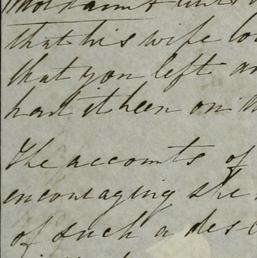 that his wife
that you left
had it been on
The accounts of
encouraging she
of such a des